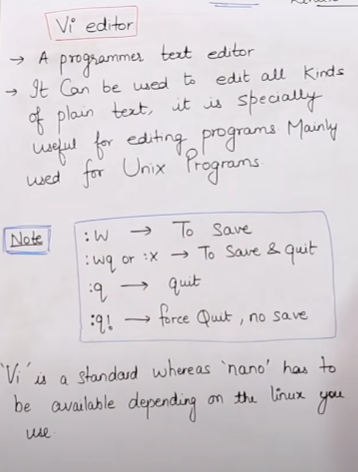 Vi editor
→ A programmer text editor
→ It Can be used to edit all kinds
of plain text, it is specially
useful for editing programs. Mainly
used for Unix Programs.
Note
:w → To Save
:wq or :x → To Save & quit
:q → quit
:q! → force Quit, no save
'Vi' is a standard whereas 'nano' has to
be available depending on the linux you
use.